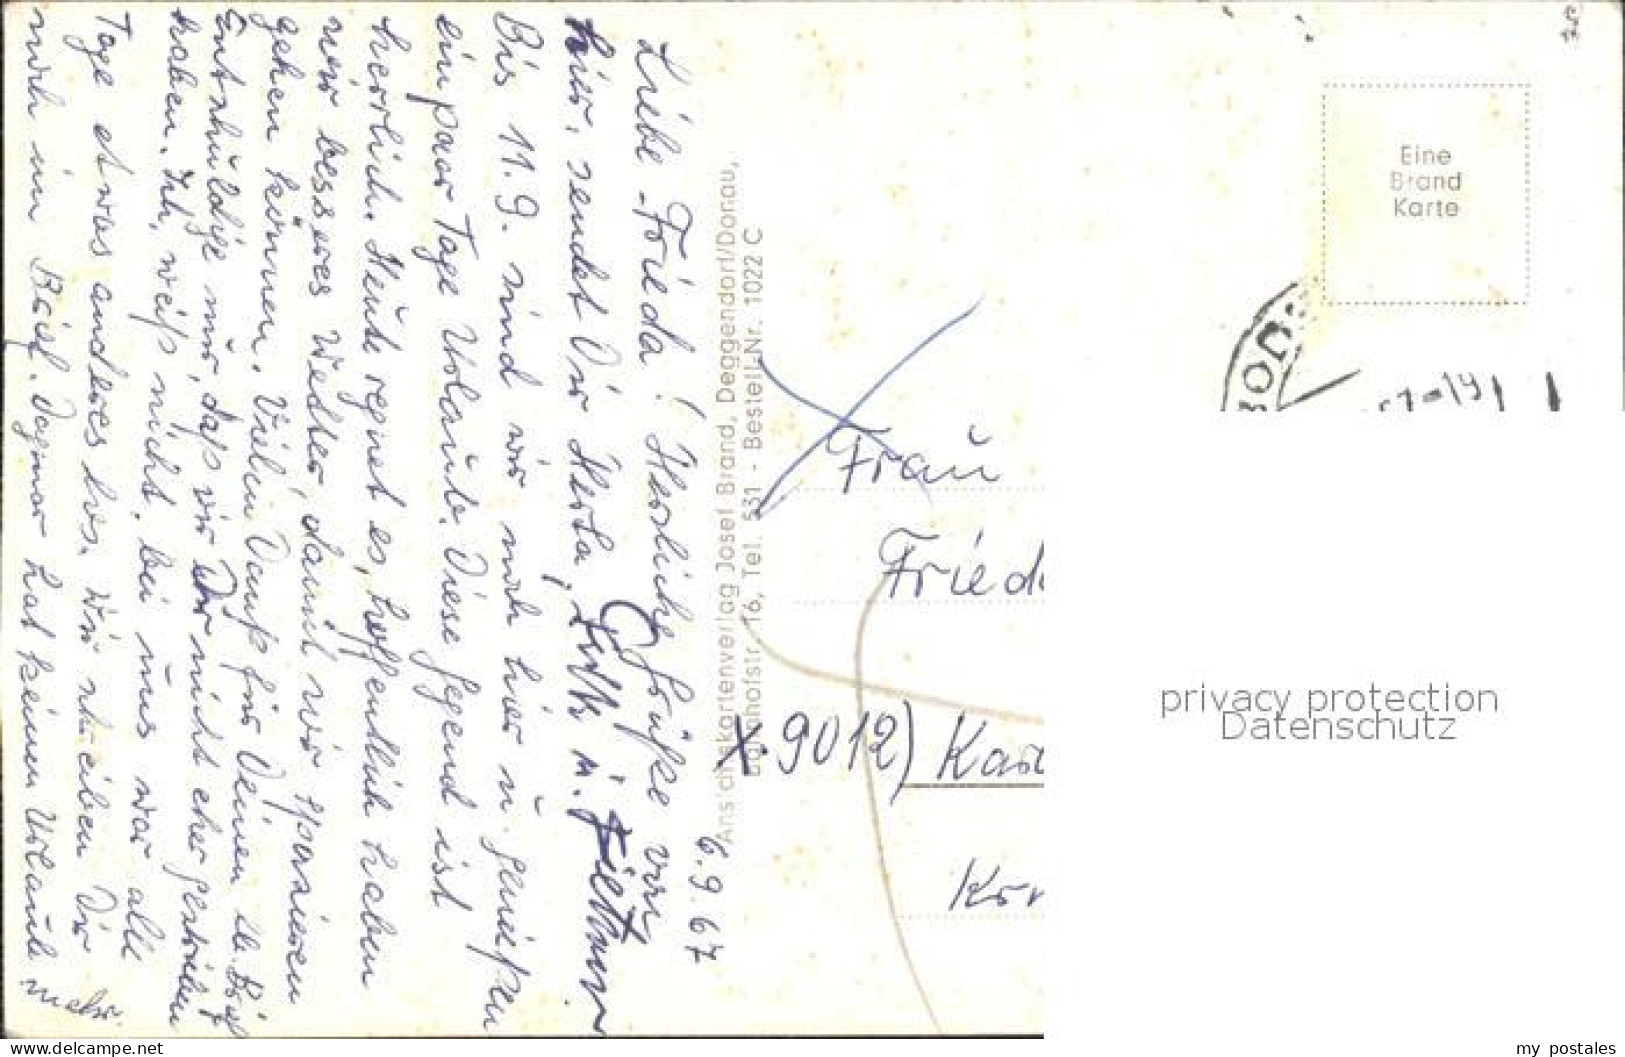 6.9.67
Liebe Frieda! Herzliche Grüße von
hier, sendet Dir Herta,
Bis 11.9. sind wir noch hier u. genießen
ein paar Tage Urlaub. Diese Gegend ist
herrlich. Heute regnet es, hoffentlich haben
wir besseres Wetter, damit wir spazieren
gehen können. Vielen Dank für Deinen lb. Brief
Entschuldige nur, daß wir Dir nicht eher geschrieben
haben. Ich weiß nicht, bei uns war alle
Tage etwas anderes los. Wir schreiben Dir
noch im Brief. Dagmar hat keinen Urlaub
mehr.
Ansichtskartenverlag Josef Brand, Deggendorf/Donau,
Bahnhofstr. 16, Tel. 531 - Bestell-Nr. 1022 C
Eine
Brand
Karte
BOD
67-19
Frau
Fried
x 9012) Kar
privacy protection
Datenschutz
www.delcampe.net
my_postales